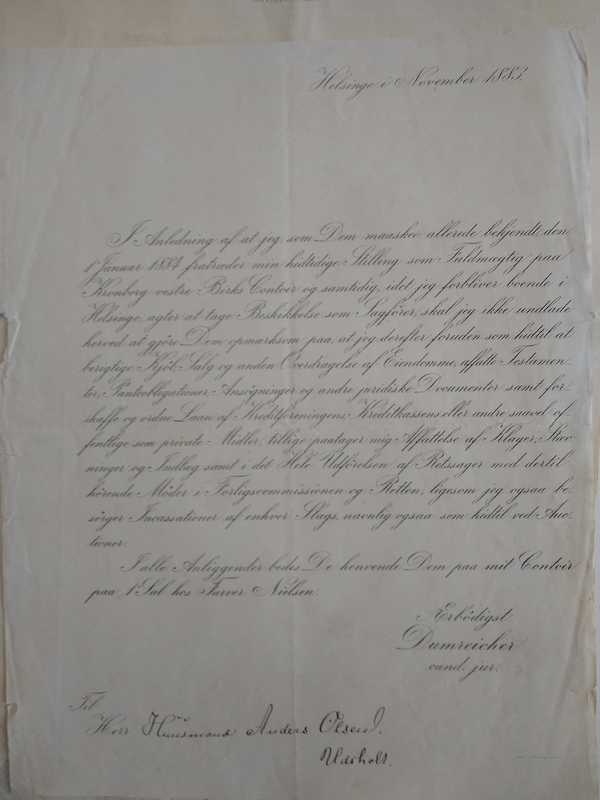 Helsinge i November 1883.
I Anledning af at jeg, som Dem maaskee allerede bekjendt, den
1ste Januar 1884 fratræder min hidtidige Stilling som Fuldmægtig paa
Kronborg vestre Birks Contoir og samtidig, idet jeg forbliver boende i
Helsinge, agter at tage Beskikkelse som Sagförer, skal jeg ikke undlade
herved at gjöre Dem opmærksom paa, at jeg derefter foruden som hidtil at
berigtige Kjöb, Salg og anden Overdragelse af Eiendomme, affatte Testamen-
ter, Panteobligationer, Ansögninger og andre juridiske Documenter samt for-
skaffe og ordne Laan af Kreditforeningens, Kreditkassens eller andre saavel of-
fentlige som private Midler, tillige paatager mig Affattelse af Klager, Stæv-
ninger og Indlæg samt i det Hele Udförelsen af Retssager med dertil
hörende Möder i Forligscommissionen og Retten, ligesom jeg ogsaa be-
sörger Incassationer af enhver Slags, navnlig ogsaa som hidtil ved Auc-
tioner.
I alle Anliggender bedes De henvende Dem paa mit Contoir
paa 1ste Sal hos Farver Nielsen.
Ærbödigst
Dumreicher
cand. jur.
Til
Herr Huusmand Anders Olsen.
Udsholt.